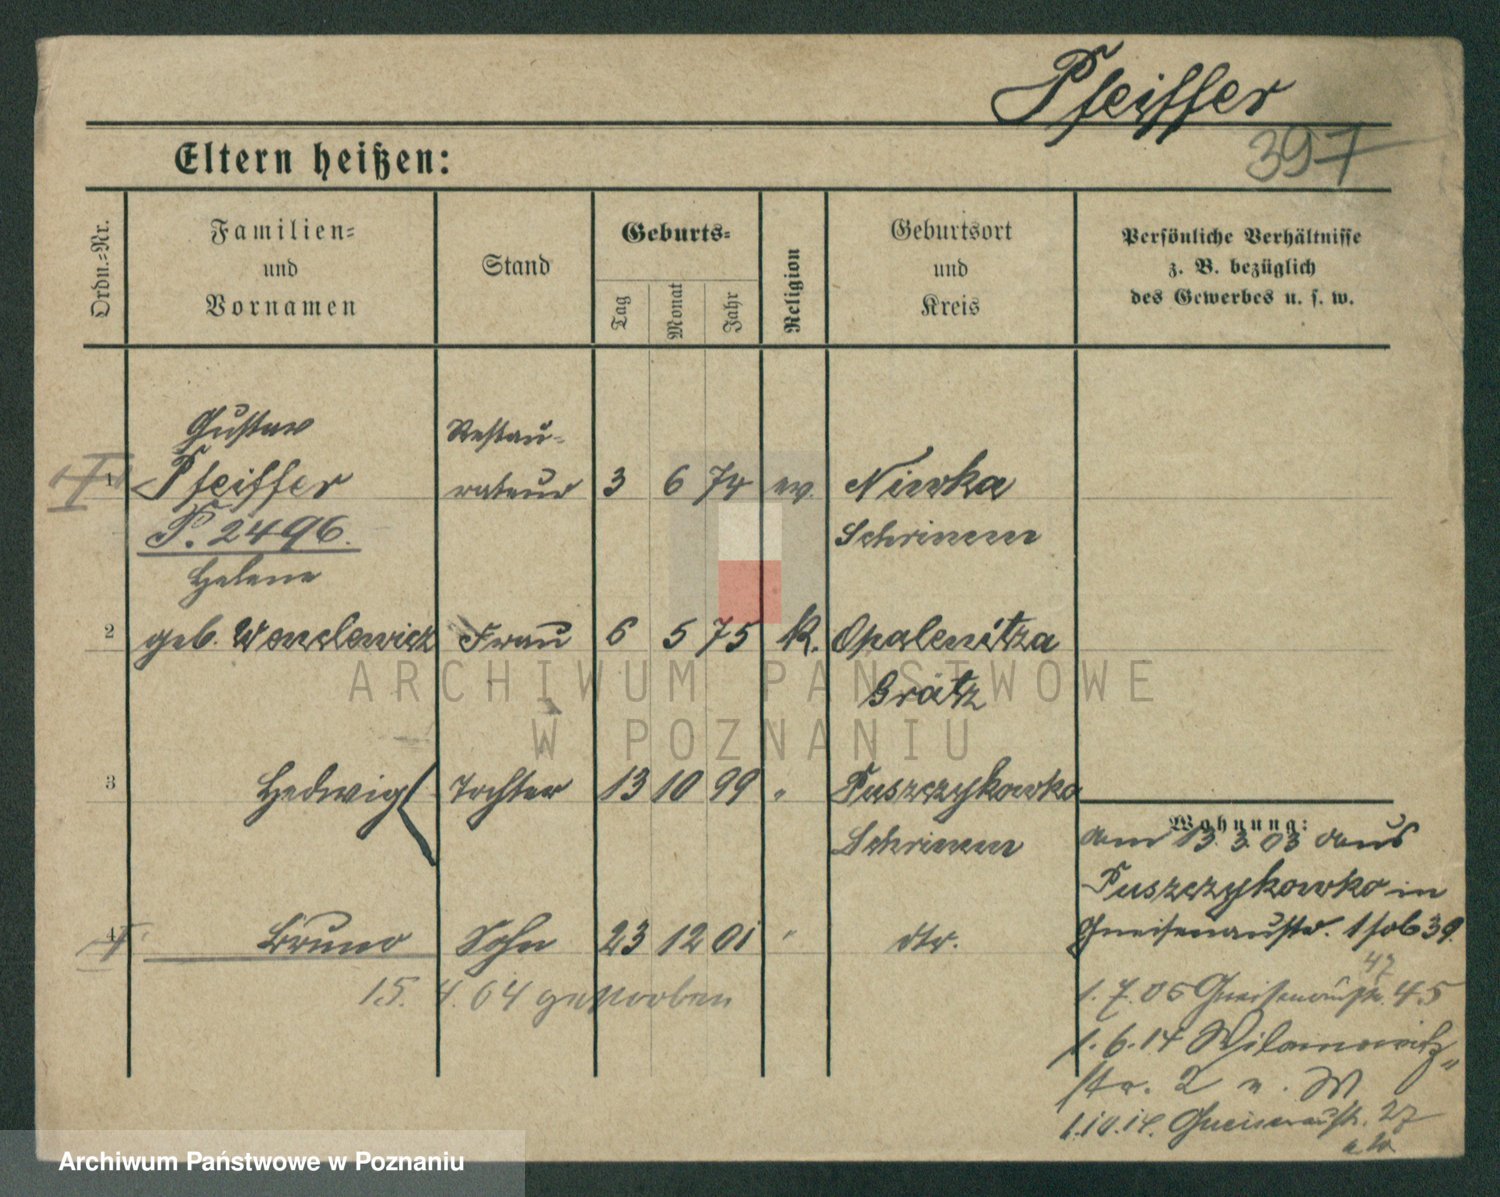 Pfeiffer
397
Eltern heißen:
Ordn.-Nr.
Familien- und Vornamen
Stand
Geburts-
Tag
Monat
Jahr
Religion
Geburtsort und Kreis
Persönliche Verhältnisse
z. B. bezüglich
des Gewerbes u. s. w.
Gustav Restau-
1 Pfeiffer rateur 3 6 74 ev. Niwka
P. 2496. Schrimm
Helene
2 geb. Frau 6 5 75 k. Opalenitza
Grätz
3 Hedwig Tochter 13 10 99 " Puszczykowko
Schrimm
4 Bruno Sohn 23 12 01 " dto.
15. 4. 04 gestorben
Wohnung:
am 13. 3. 03 aus
Puszczykowko in
Gneisenaustr. 1
47
1. 7. 05 Gneisenaustr. 45
1. 6. 14 Wilamowitz-
str. 2
1.10.14. Gneisenaustr. 27
ARCHIWUM PAŃSTWOWE
W POZNANIU
Archiwum Państwowe w Poznaniu